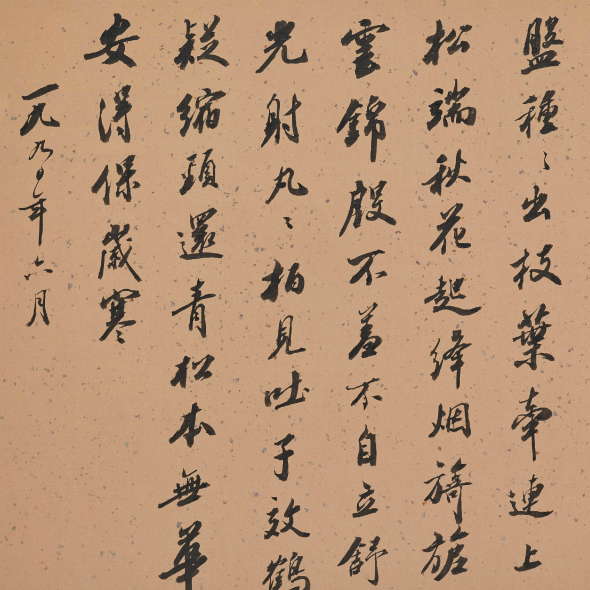 盤種〻出枝葉牽連上
松端秋花起绛烟旖旎
雲錦殷不羞不自立舒
光射丸〻栢見吐子效鶴
疑縮頭還青松本無華
安得保歲寒
一九九〇年六月